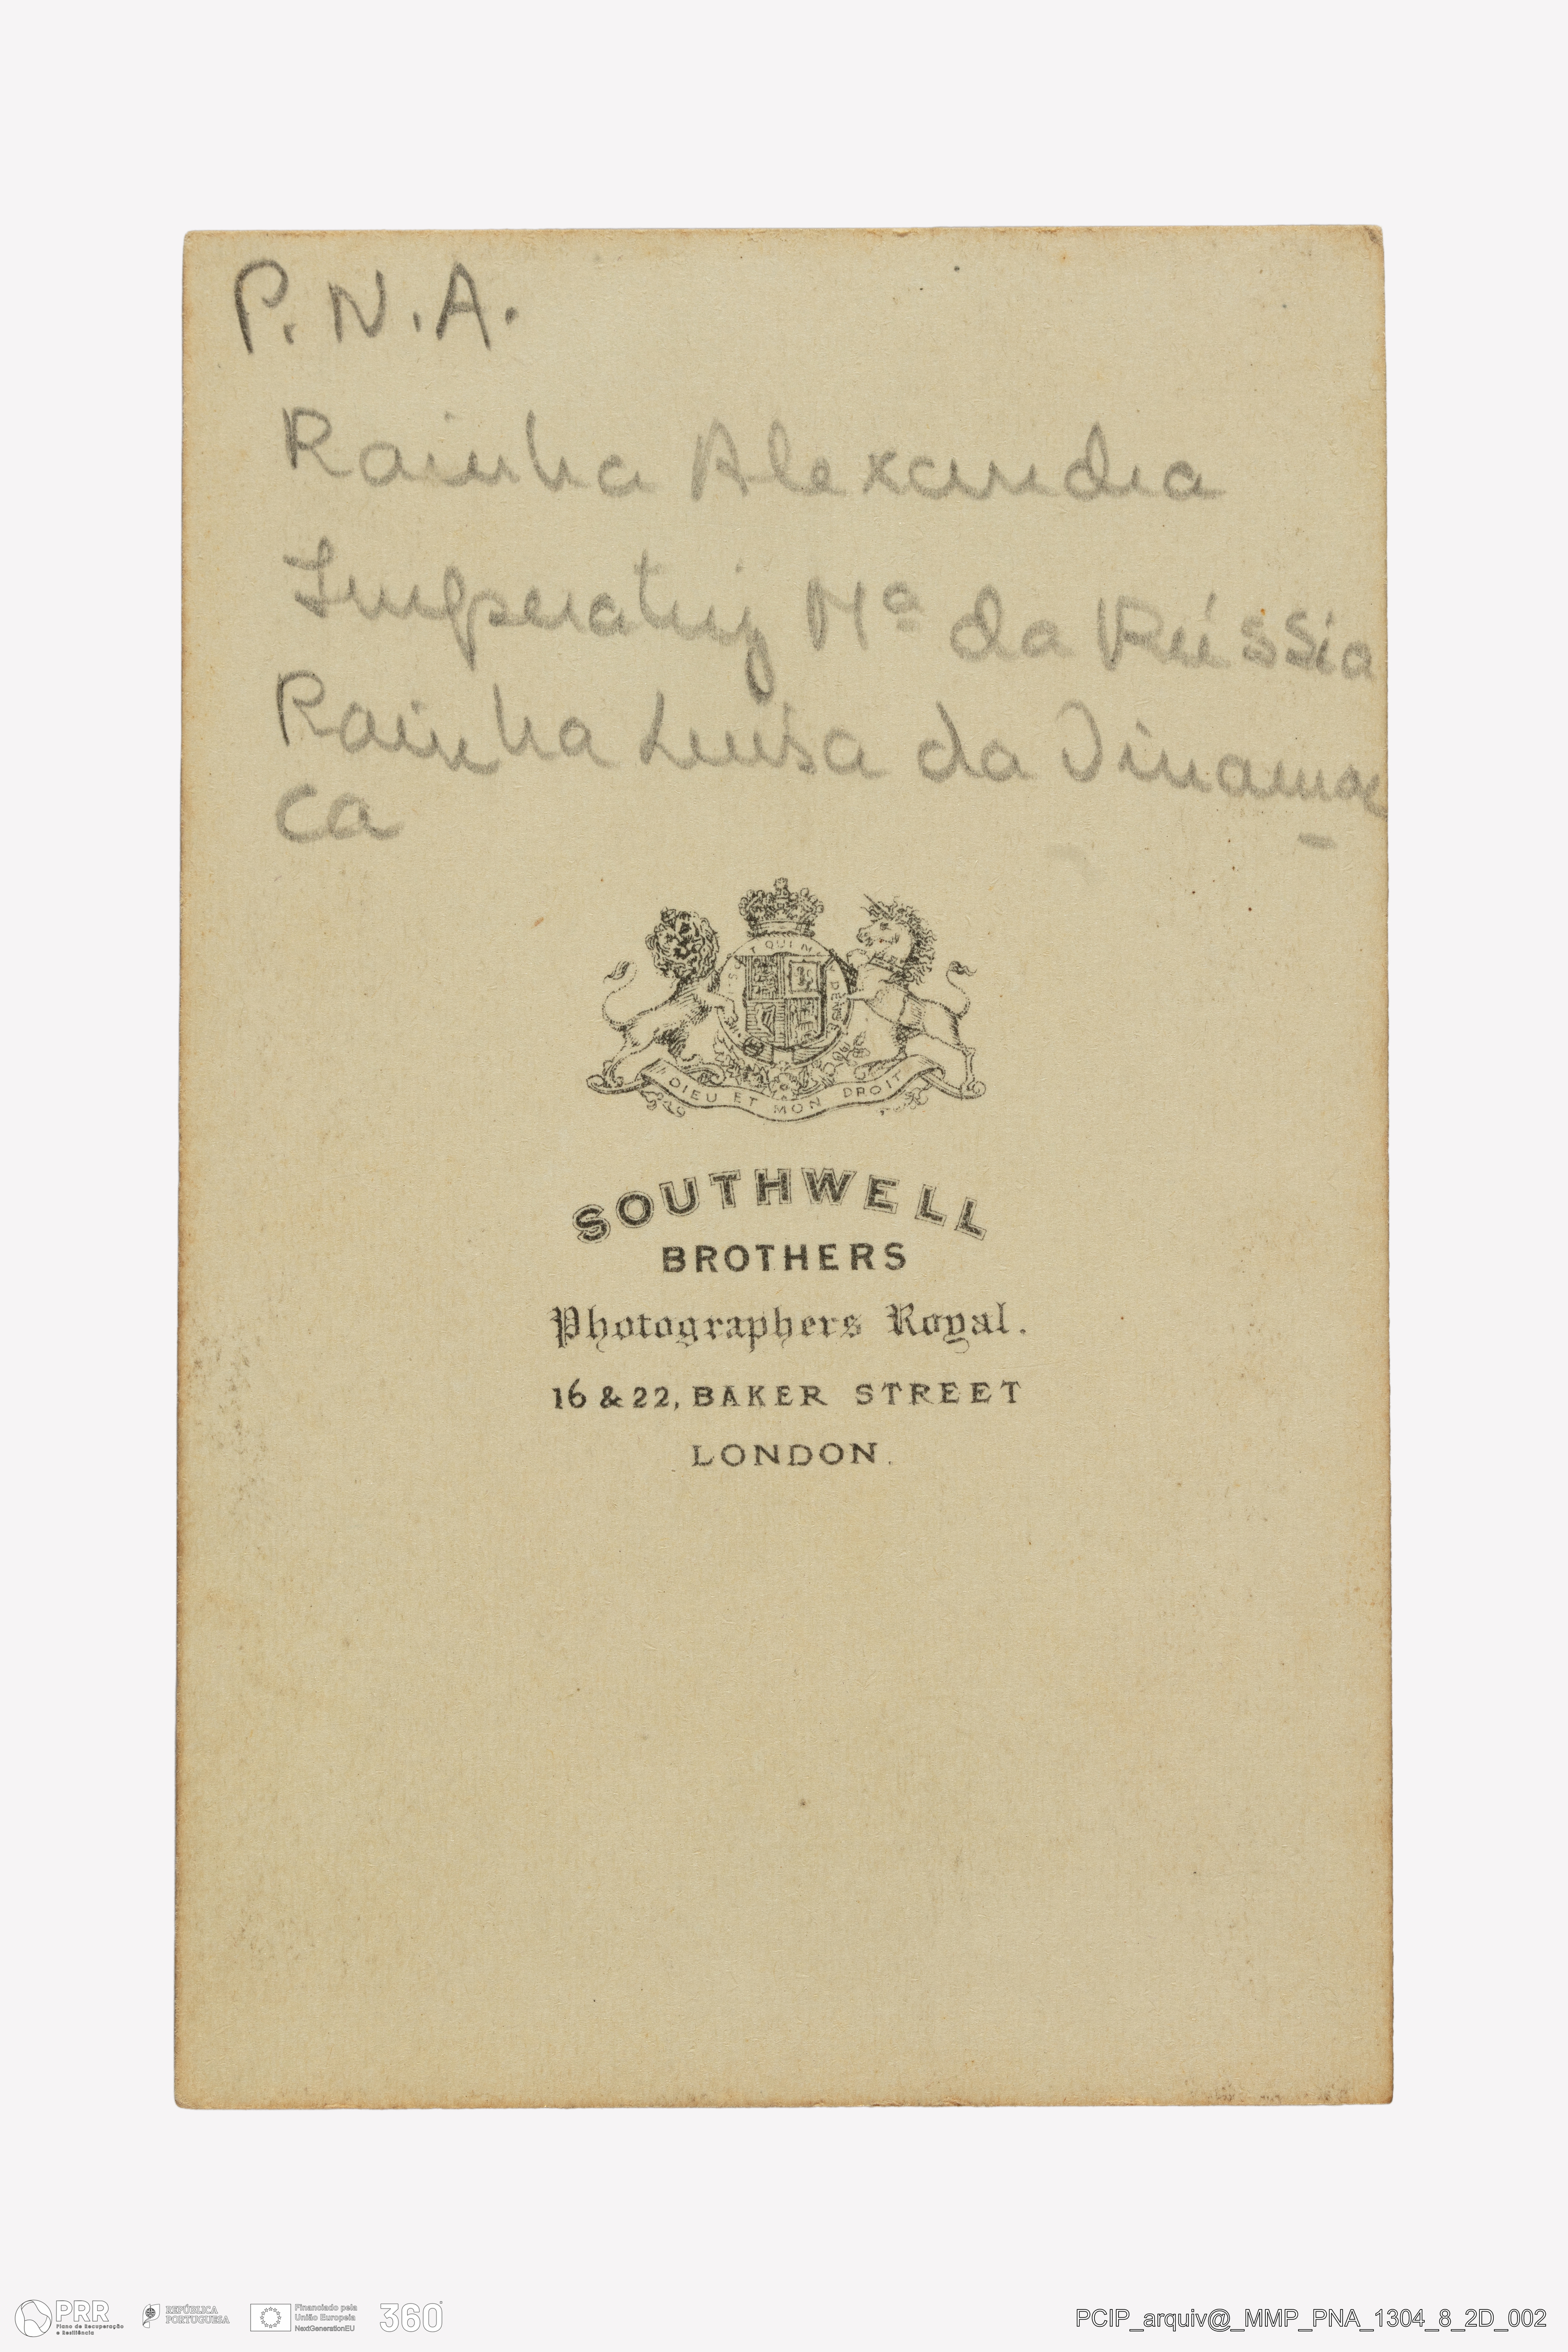 P.N.A.
Rainha Alexandra
Imperatriz Mª da Rússia
Rainha Luisa da Dinamar
ca
DIEU ET MON DROIT
SOUTHWELL
BROTHERS
Photographers Royal.
16 & 22, BAKER STREET
LONDON.
PRR
Plano de Recuperação
e Resiliência
REPÚBLICA
PORTUGUESA
Financiado pela
União Europeia
NextGenerationEU
360°
PCIP_arquiv@_MMP_PNA_1304_8_2D_002